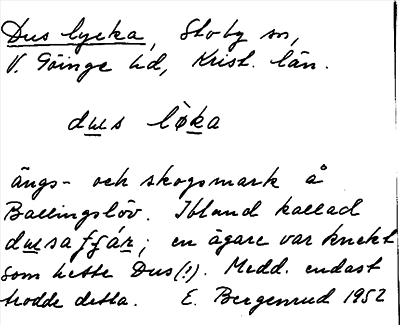 Dus lycka, Stoby sn,
V. Göinge hd, Krist. län.
dus løka
ängs- och skogsmark å
Ballingslöv. Ibland kallad
dusa fjär; en ägare var knekt
som hette Dus(!). Medd. endast
trodde detta. E. Bergenrud 1952